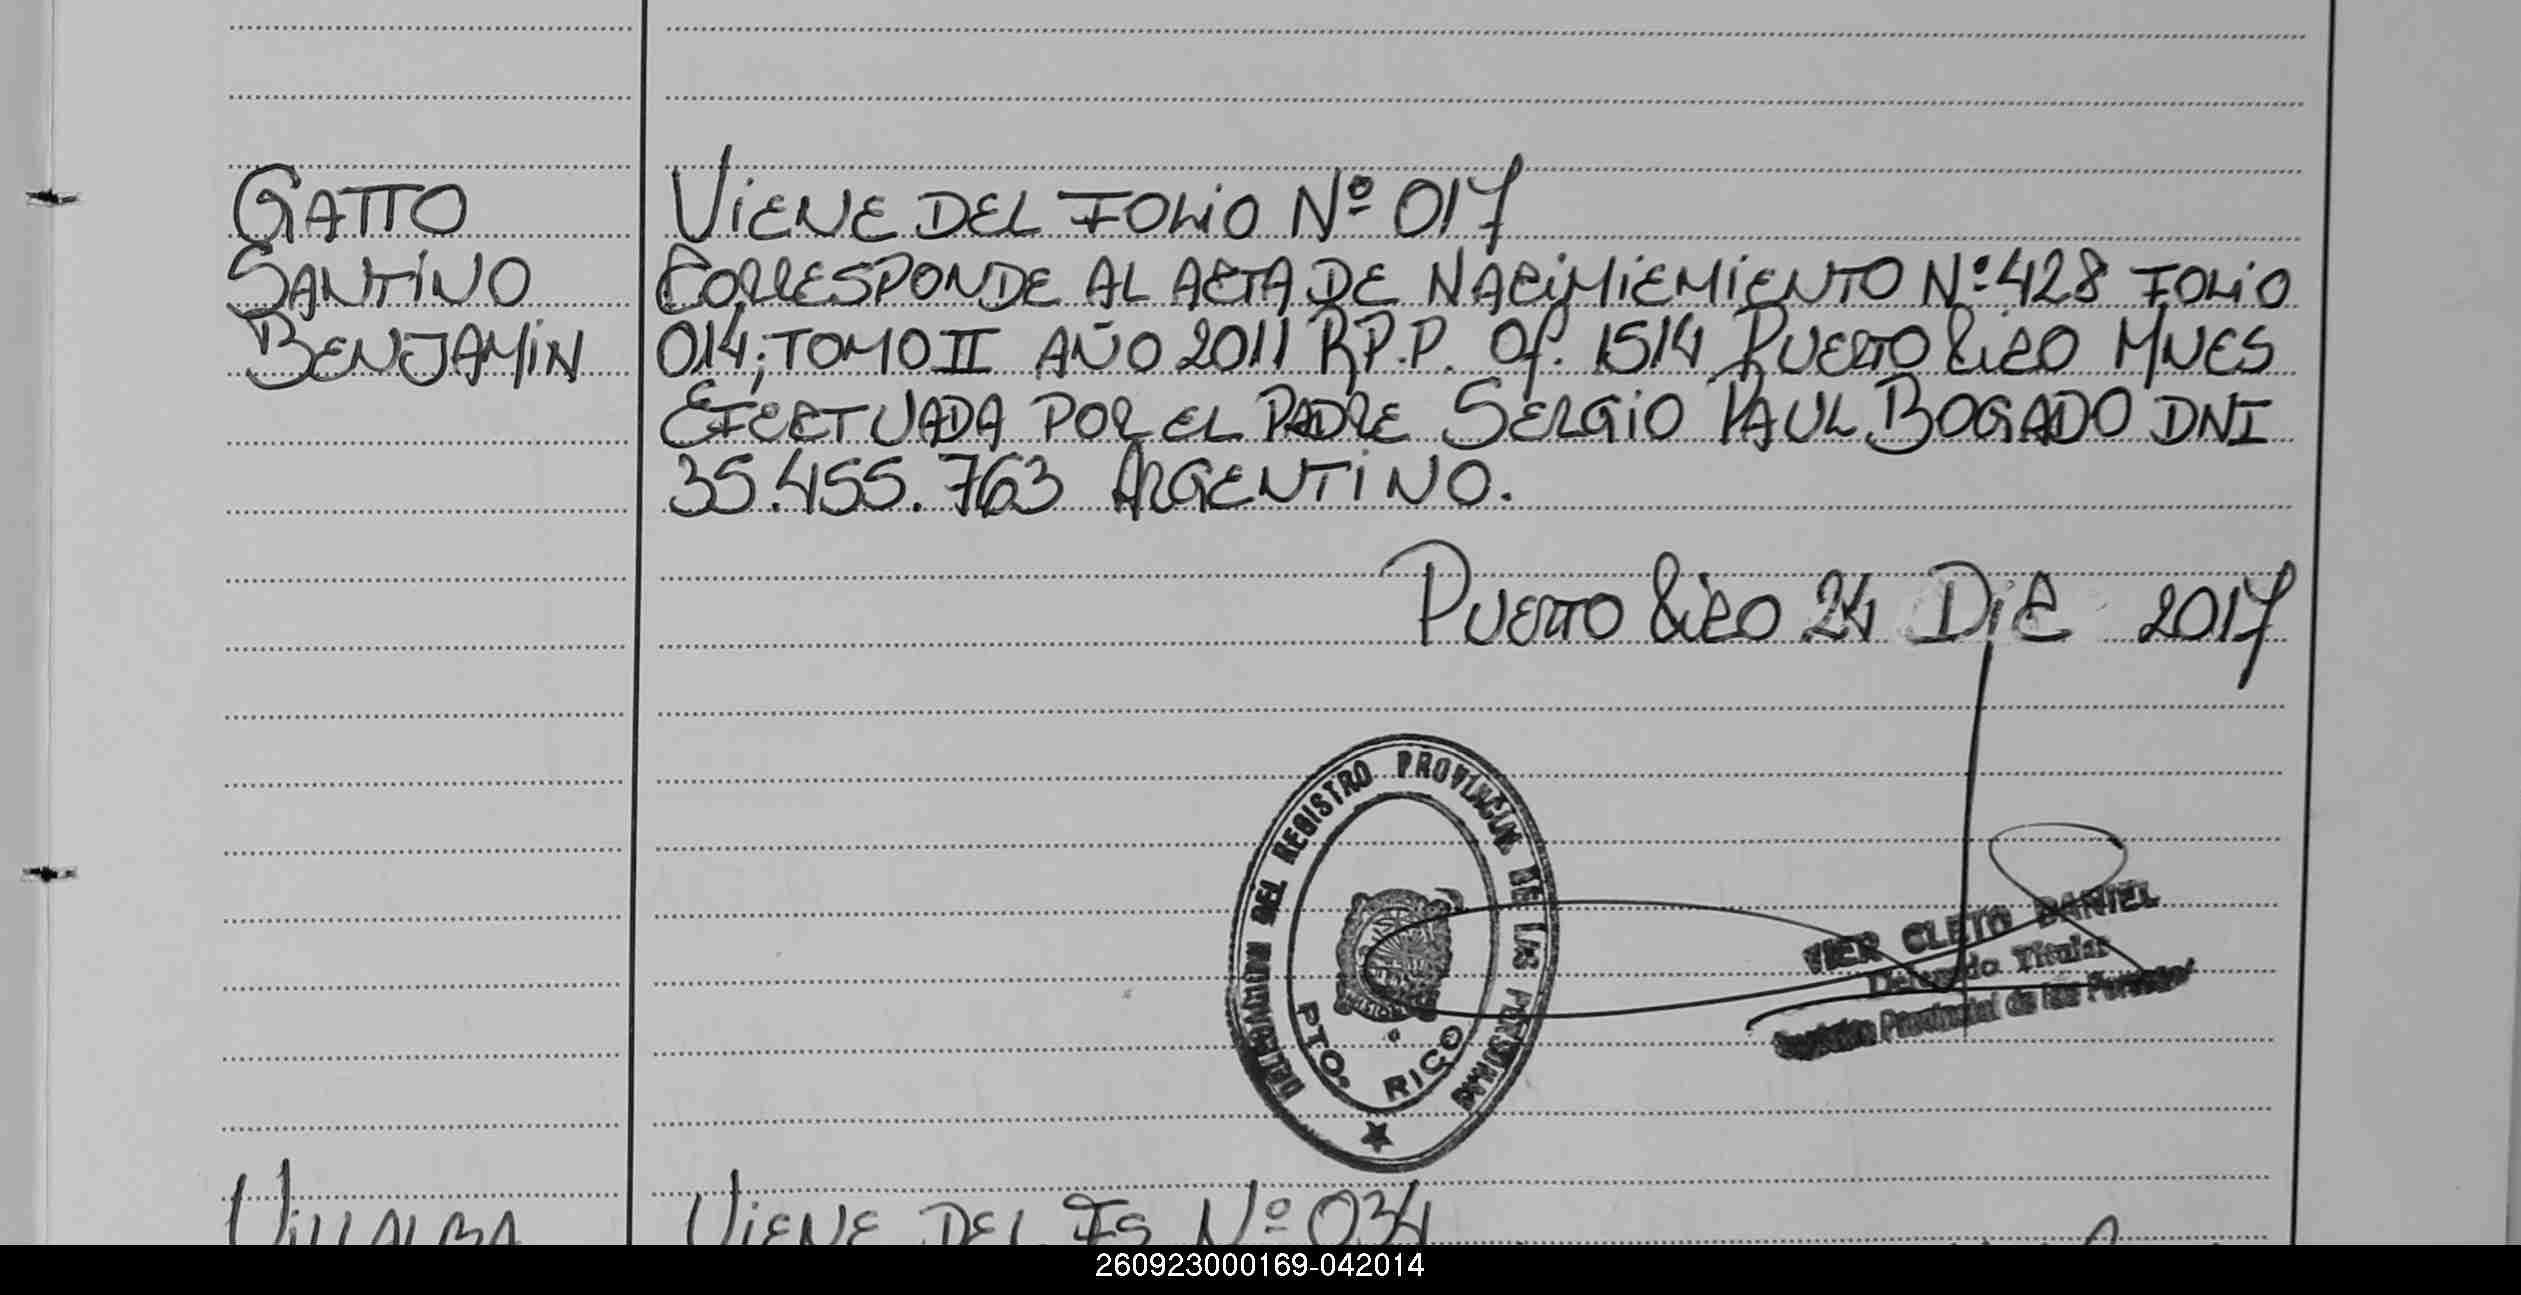 GATTO
SANTINO
BENJAMIN
VIENE DEL FOLIO Nº 017
CORRESPONDE AL ACTA DE NACIMIEMIENTO Nº 428 FOLIO
014; TOMO II AÑO 2011 R.P.P. Of. 1514 PUERTO RICO MNES
EFECTUADA POR EL PADRE SERGIO PAUL BOGADO DNI
35.455.763 ARGENTINO.
PUERTO RICO 24 DIC 2017
DELEGACION DEL REGISTRO PROVINCIAL DE LAS PERSONAS
PTO. RICO
VIER CLETO DANIEL
Delegado Titular
Registro Provincial de las Personas
VILLALBA
VIENE DEL Fs Nº 034
260923000169-042014